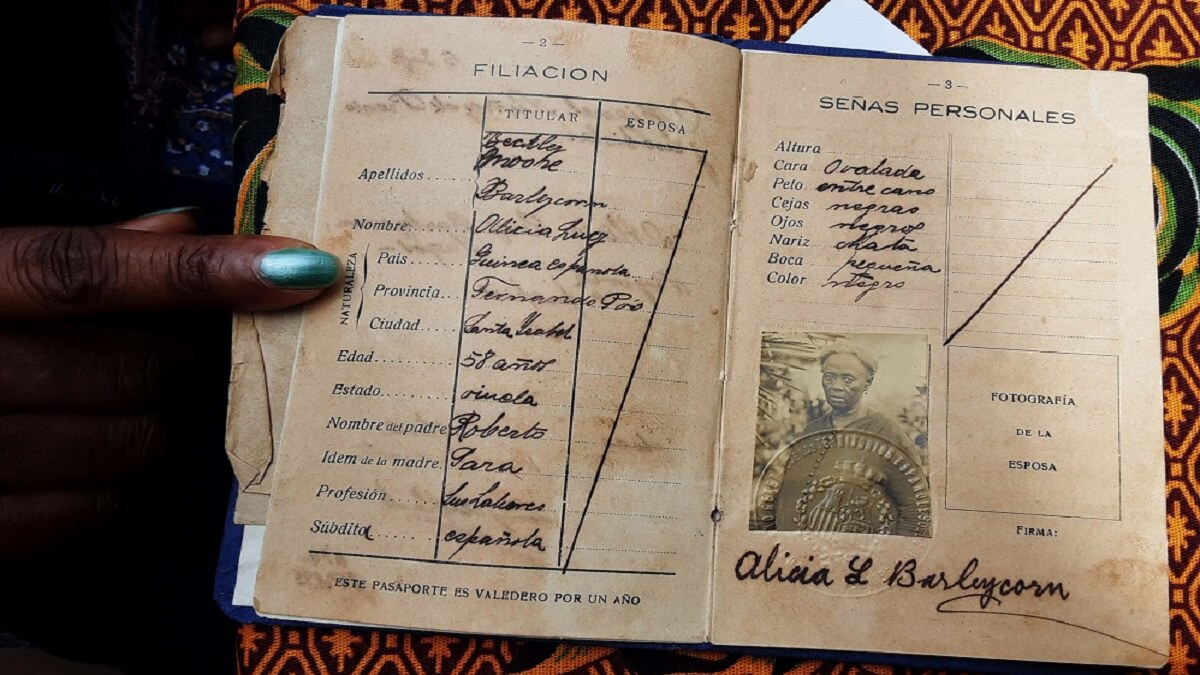 — 2 —
FILIACION
TITULAR ESPOSA
Apellidos
Barleycorn
Nombre Alicia
NATURALEZA
País Guinea española
Provincia Fernando Póo
Ciudad Santa Isabel
Edad 58 años
Estado viuda
Nombre del padre Roberto
Idem de la madre Sara
Profesión Sus Labores
Súbdita española
ESTE PASAPORTE ES VALEDERO POR UN AÑO
— 3 —
SEÑAS PERSONALES
Altura
Cara Ovalada
Pelo entre cano
Cejas negras
Ojos negros
Nariz chata
Boca pequeña
Color negro
FOTOGRAFÍA
DE LA
ESPOSA
FIRMA:
Alicia L Barleycorn